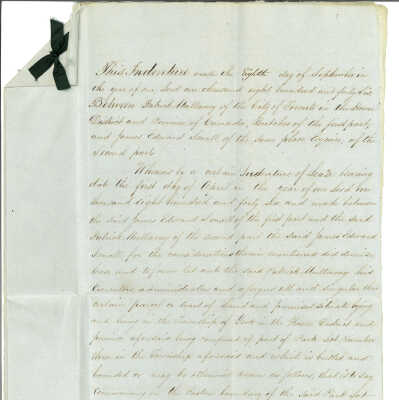 This Indenture made the Eighth day of September in
the year of our Lord one thousand eight hundred and forty six
Between Patrick Mullavey of the City of Toronto in the Home
District and Province of Canada, Butcher of the first part,
and James Edward Small of the same place Esquire, of the
Second part.
Whereas by a certain Indenture of Lease bearing
date the first day of April in the year of our Lord one
thousand eight hundred and forty six and made between
the said James Edward Small of the first part and the said
Patrick Mullavey of the second part the said James Edward
Small, for the considerations therein mentioned did demise
lease and to farm let unto the said Patrick Mullavey his
Executors administrators and assigns all and Singular that
certain parcel or tract of land and premises situate lying
and being in the Township of York in the Home District and
province aforesaid being composed of part of Park Lot Number
three in the Township aforesaid and which is butted and
bounded or may be otherwise known as follows, that is to say
Commencing in the Eastern boundary of the said Park Lot